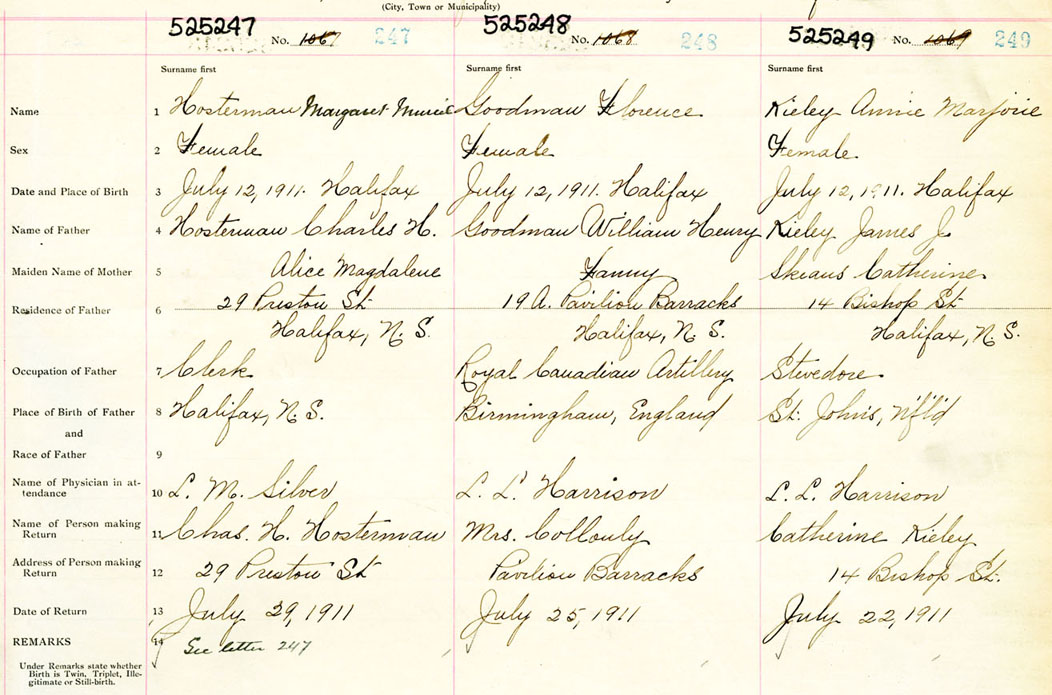 (City, Town or Municipality)
525247 No. 1067 247 525248 No. 1068 248 525249 No. 1069 249
Surname first Surname first Surname first
Name 1 Hosterman Margaret Muriel Goodman Florence Kieley Annie Marjorie
Sex 2 Female Female Female
Date and Place of Birth 3 July 12, 1911. Halifax July 12, 1911. Halifax July 12, 1911. Halifax
Name of Father 4 Hosterman Charles H. Goodman William Henry Kieley James J.
Maiden Name of Mother 5 Alice Magdalene Fanny Catherine
Residence of Father 6 29 Preston St. 19 A. Pavilion Barracks 14 Bishop St.
Halifax, N.S. Halifax, N.S. Halifax, N.S.
Occupation of Father 7 Clerk Royal Canadian Artillery Stevedore.
Place of Birth of Father 8 Halifax, N.S. Birmingham, England St. John's, Nf'l'd
and
Race of Father 9
Name of Physician in at-
tendance 10 L. M. Silver L. L. Harrison L. L. Harrison
Name of Person making
Return 11 Chas. H. Hosterman Mrs. Catherine Kieley
Address of Person making
Return 12 29 Preston St. Pavilion Barracks 14 Bishop St.
Date of Return 13 July 29, 1911 July 25, 1911 July 22, 1911
REMARKS 14 See letter 247
Under Remarks state whether
Birth is Twin, Triplet, Ille-
gitimate or Still-birth.